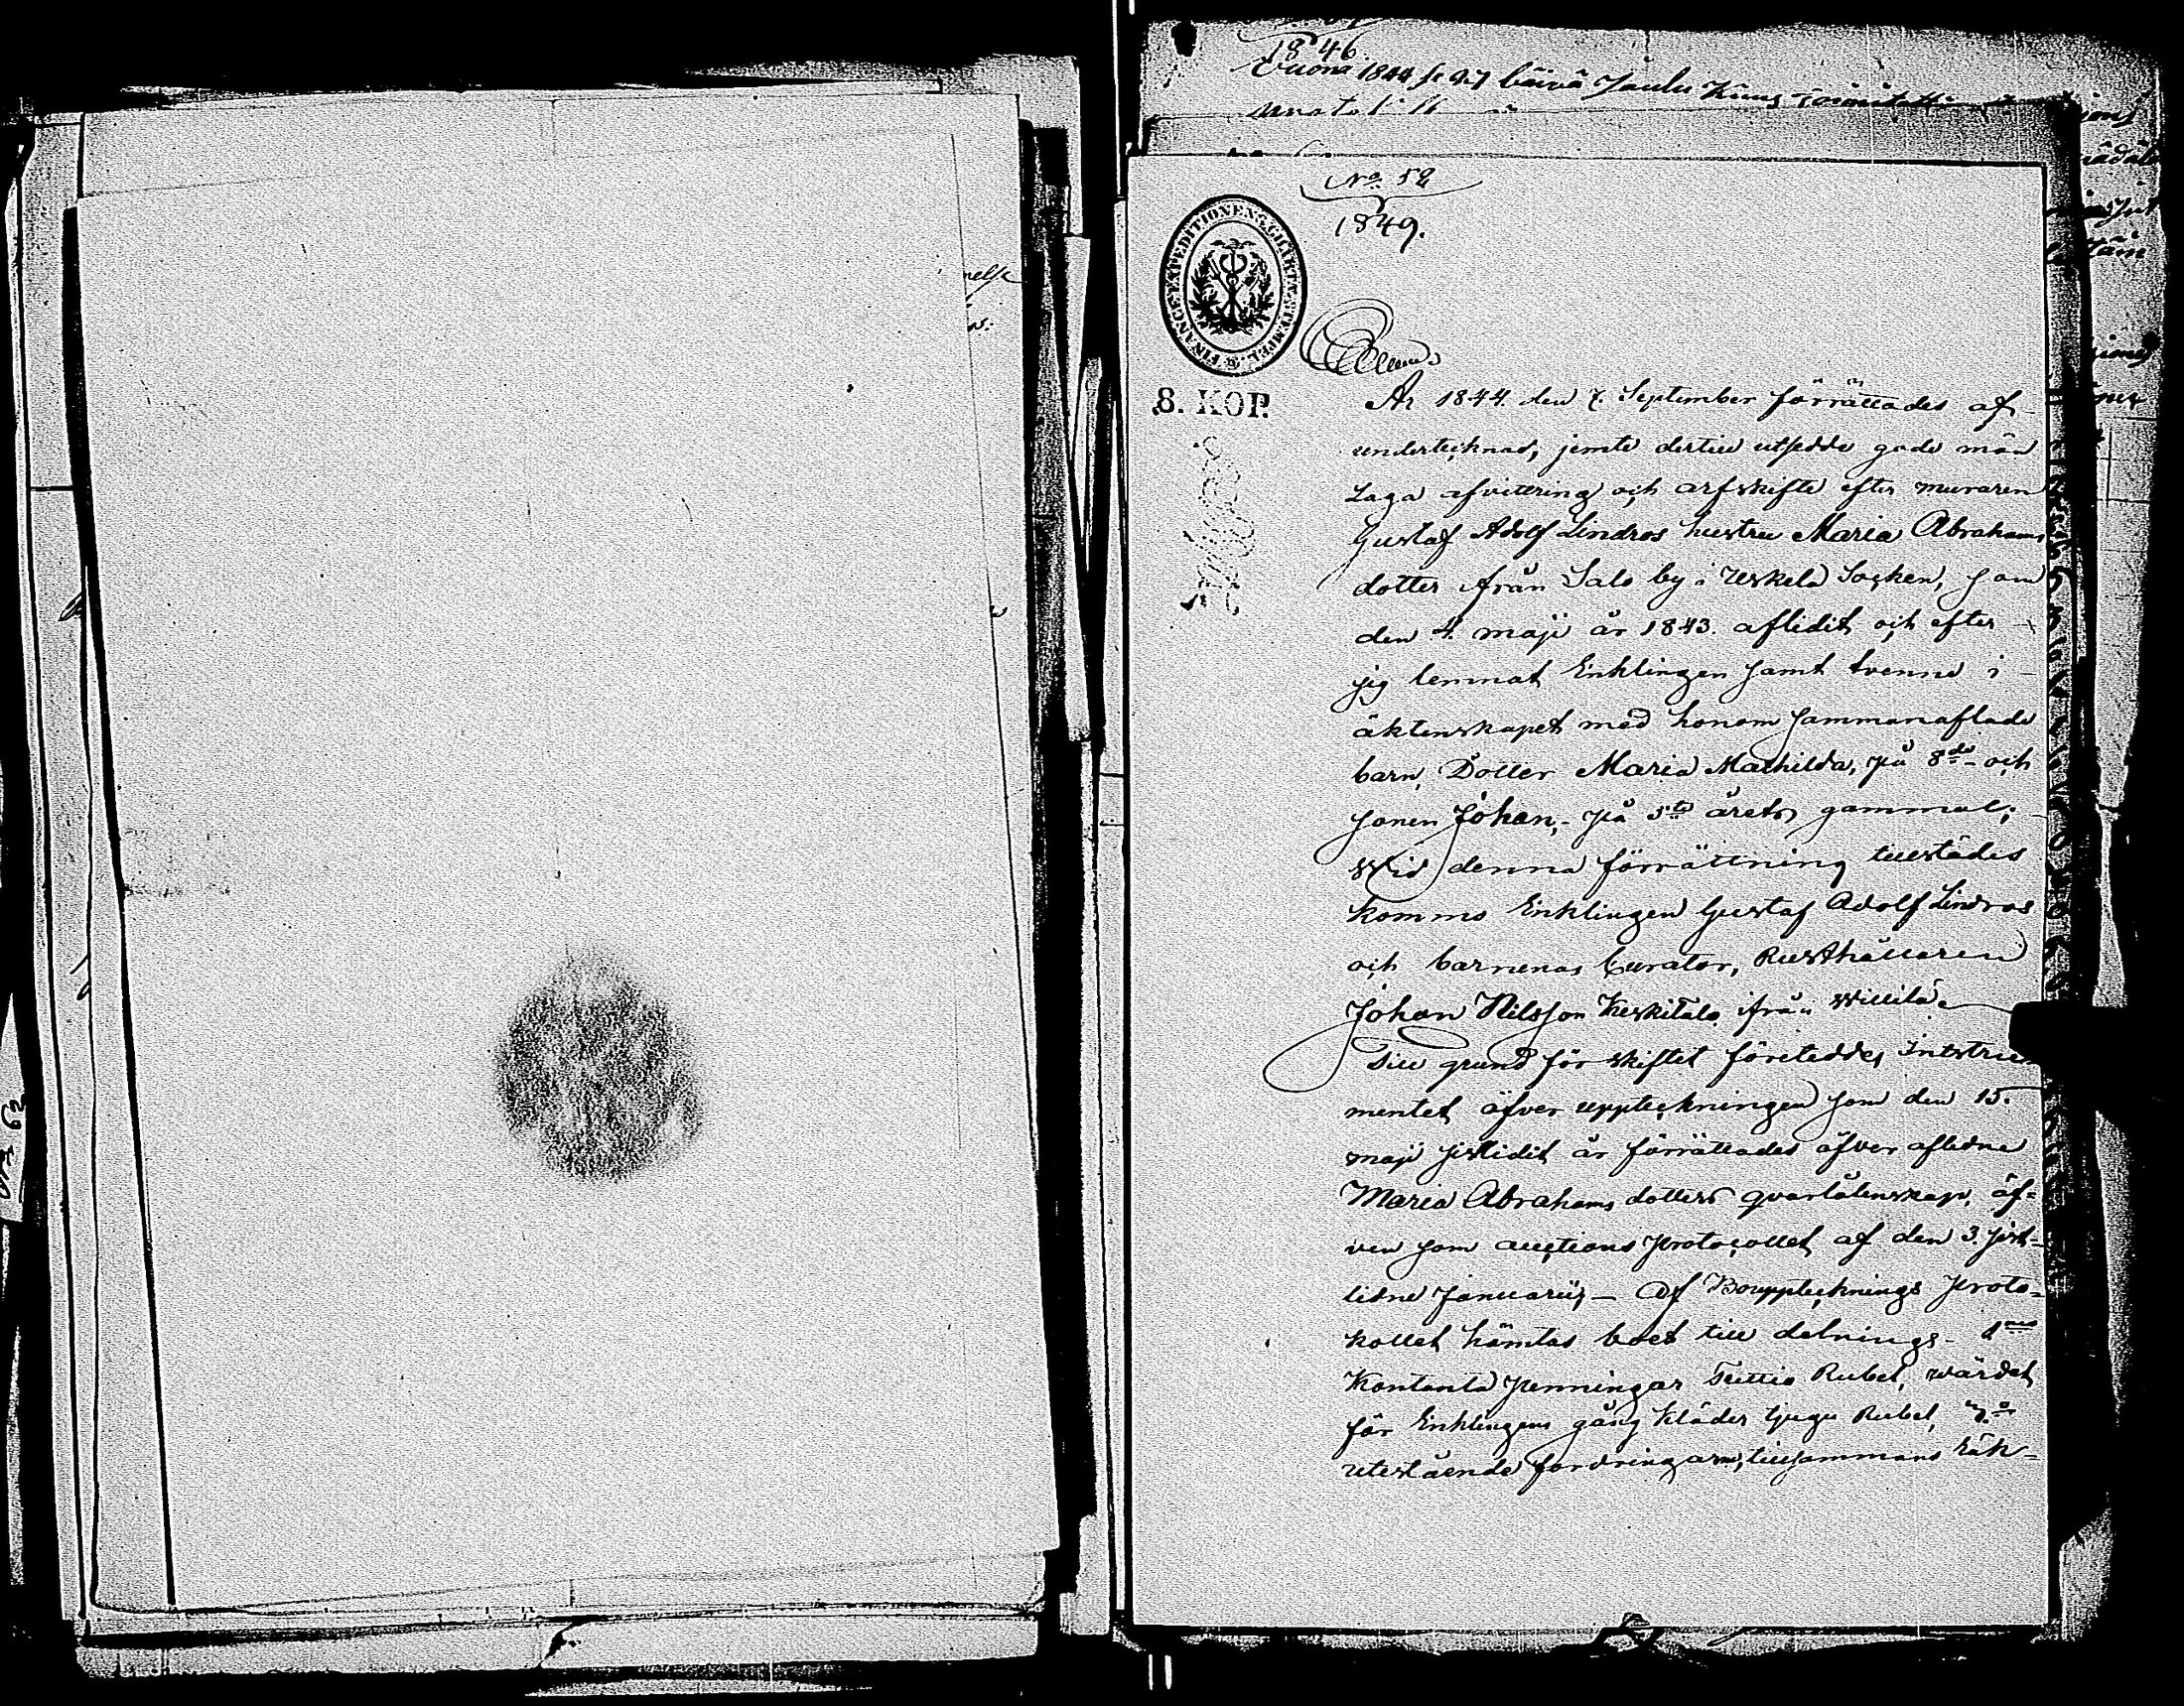 1846
Wuona 1844 se 27 päivä Joulu Kuus toimitettin
No 52
1849.
FINANCE-EXPEDITIONENS CHARTÆ STEMPEL
8. KOP.
År 1844. den 7. September förrättades af
undertecknad, jemte dertill utsedde gode män
Laga afvittring och arfskifte efter muraren
Gustaf Adolf Lindros hustru Maria Abrahams
dotter ifrån Salo by i Uskela Socken, som
den 4. maji år 1843. aflidit och efter
sig lemnat Enklingen samt tvenne i
äktenskapet med honom sammanaflade
barn, Dotter Maria Mathilda, på 8de och
sonen Johan, på 5te året gammal;
Wid denna förrättning tillstädes
kommo Enklingen Gustaf Adolf Lindros
och barnenas Curator, Rusthållaren
Johan Nilsson Keskitalo ifrån Willilä
Till grund för skiftet företeddes Instru
mentet öfver uppteckningen som den 15.
maji sistlidit år förrättades öfver aflidne
Maria Abrahams dotters qvarlåtenskap, äf=
ven som auctions Protocollet af den 3. sist-
lidne Januarii, — Af Bouppteknings Proto=
kollet hämtas boet till delnings - 1mo
Kontanta Penningar Trettio Rubel, värdet
för Enklingens gång Kläder tjugu Rubel,
utestående fordringarne, tillsammans Räk=